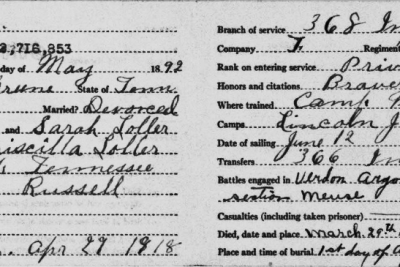 2,716,853
day of May 1892
State of Tenn
Married? Devorced
and Sarah Loller
Priscilla Loller
Tennessee
Russell
Apr 29 1918
Branch of service 368 In
Company F Regiment
Rank on entering service Priv
Honors and citations Brave
Where trained Camp
Camps Lincoln J
Date of sailing June 12
Transfers 366 In
Battles engaged in Verdon Argo
section Meuse
Casualties (including taken prisoner)
Died, date and place March 29th
Place and time of burial 1st day of A